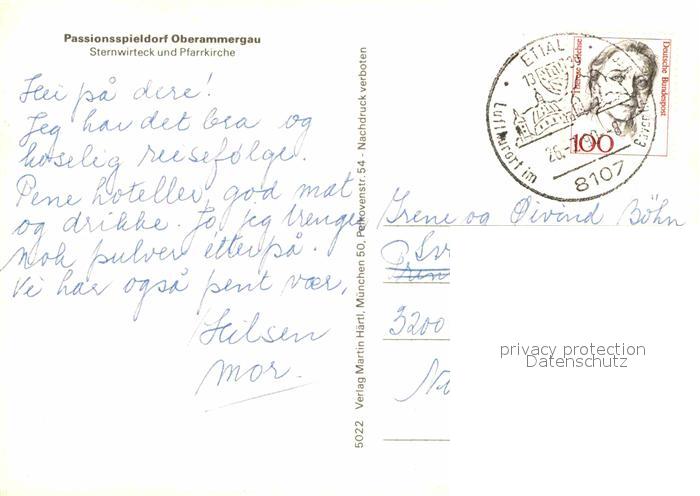 Passionsspieldorf Oberammergau
Sternwirteck und Pfarrkirche
Hei på dere!
Jeg har det bra og
koselig reisefølge.
Pene hoteller, god mat
og drikke. Jo jeg trenger
nok pulver etterpå.
Vi har også pent vær,
Hilsen
mor.
5022 Verlag Martin Härtl, München 50, Pelkovenstr. 54 - Nachdruck verboten
ETTAL
Luftkurort im
8107
Deutsche Bundespost
Therese Giehse
100
Irene og Øivind Bøhn
Sv
3200
No
privacy protection
Datenschutz